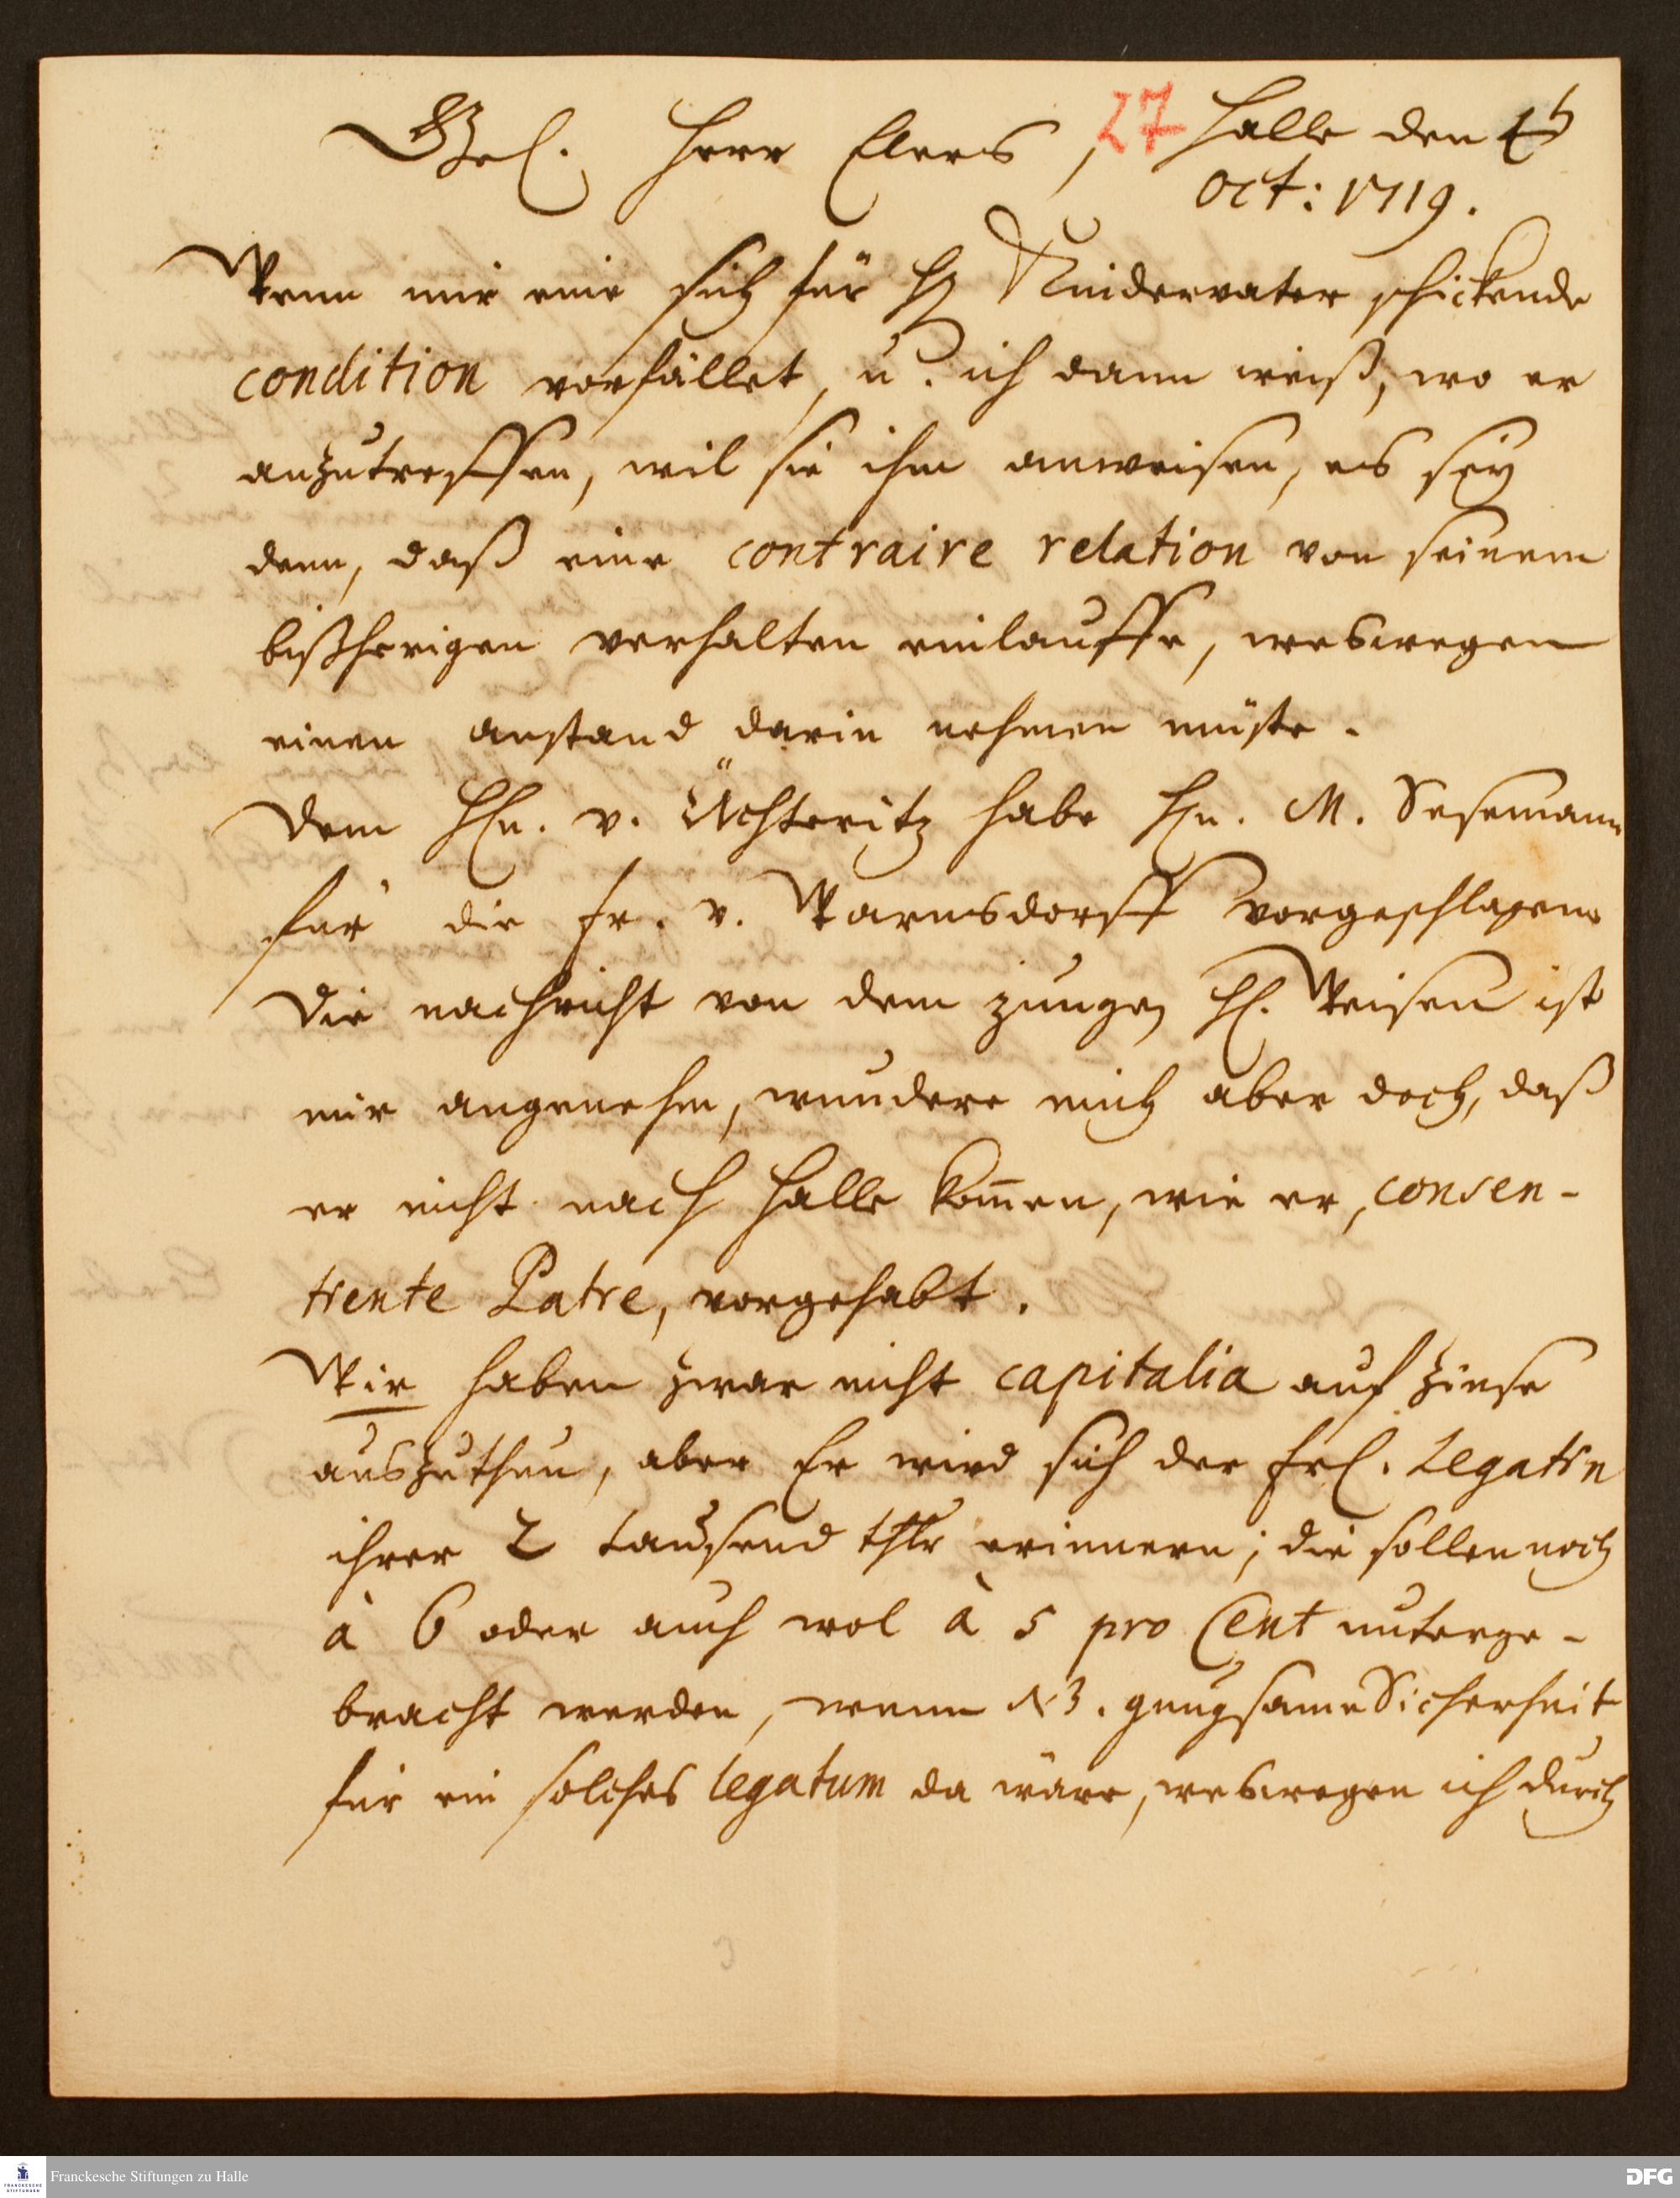 Gel. Herr Elers, 27 Halle den
oct: 1719.
Wenn mir eine sich für H Kindervater schickende
condition vorfället, u. ich dann weiß, wo er
anzutreffen, wil sie ihm anweisen, es sey
denn, daß eine contraire relation von seinem
bißherigen verhalten einlauffe, weswegen
einen anstand darin nehmen müste.
Dem Hn. v. Üchteritz habe Hn. M. Sesemann
für die Fr. v. Warnsdorff vorgeschlagen
Die nachricht von dem jungen H. Weisen ist
mir angenehm, wundere mich aber doch, daß
er nicht nach Halle kom̄en, wie er, consen-
tiente Patre, vorgehabt.
Wir haben zwar nicht capitalia auf Zinse
auszuthun, aber Er wird sich der Frl. Legatin
ihrer 2 tausend thlr erinnern; die sollen noch
à 6 oder auch wol à 5 pro Cent unterge-
bracht werden, wenn NB. gnugsame Sicherheit
für ein solches legatum da wäre, weswegen ich durch
Franckesche Stiftungen zu Halle
FRANCKESCHE
STIFTUNGEN
DFG